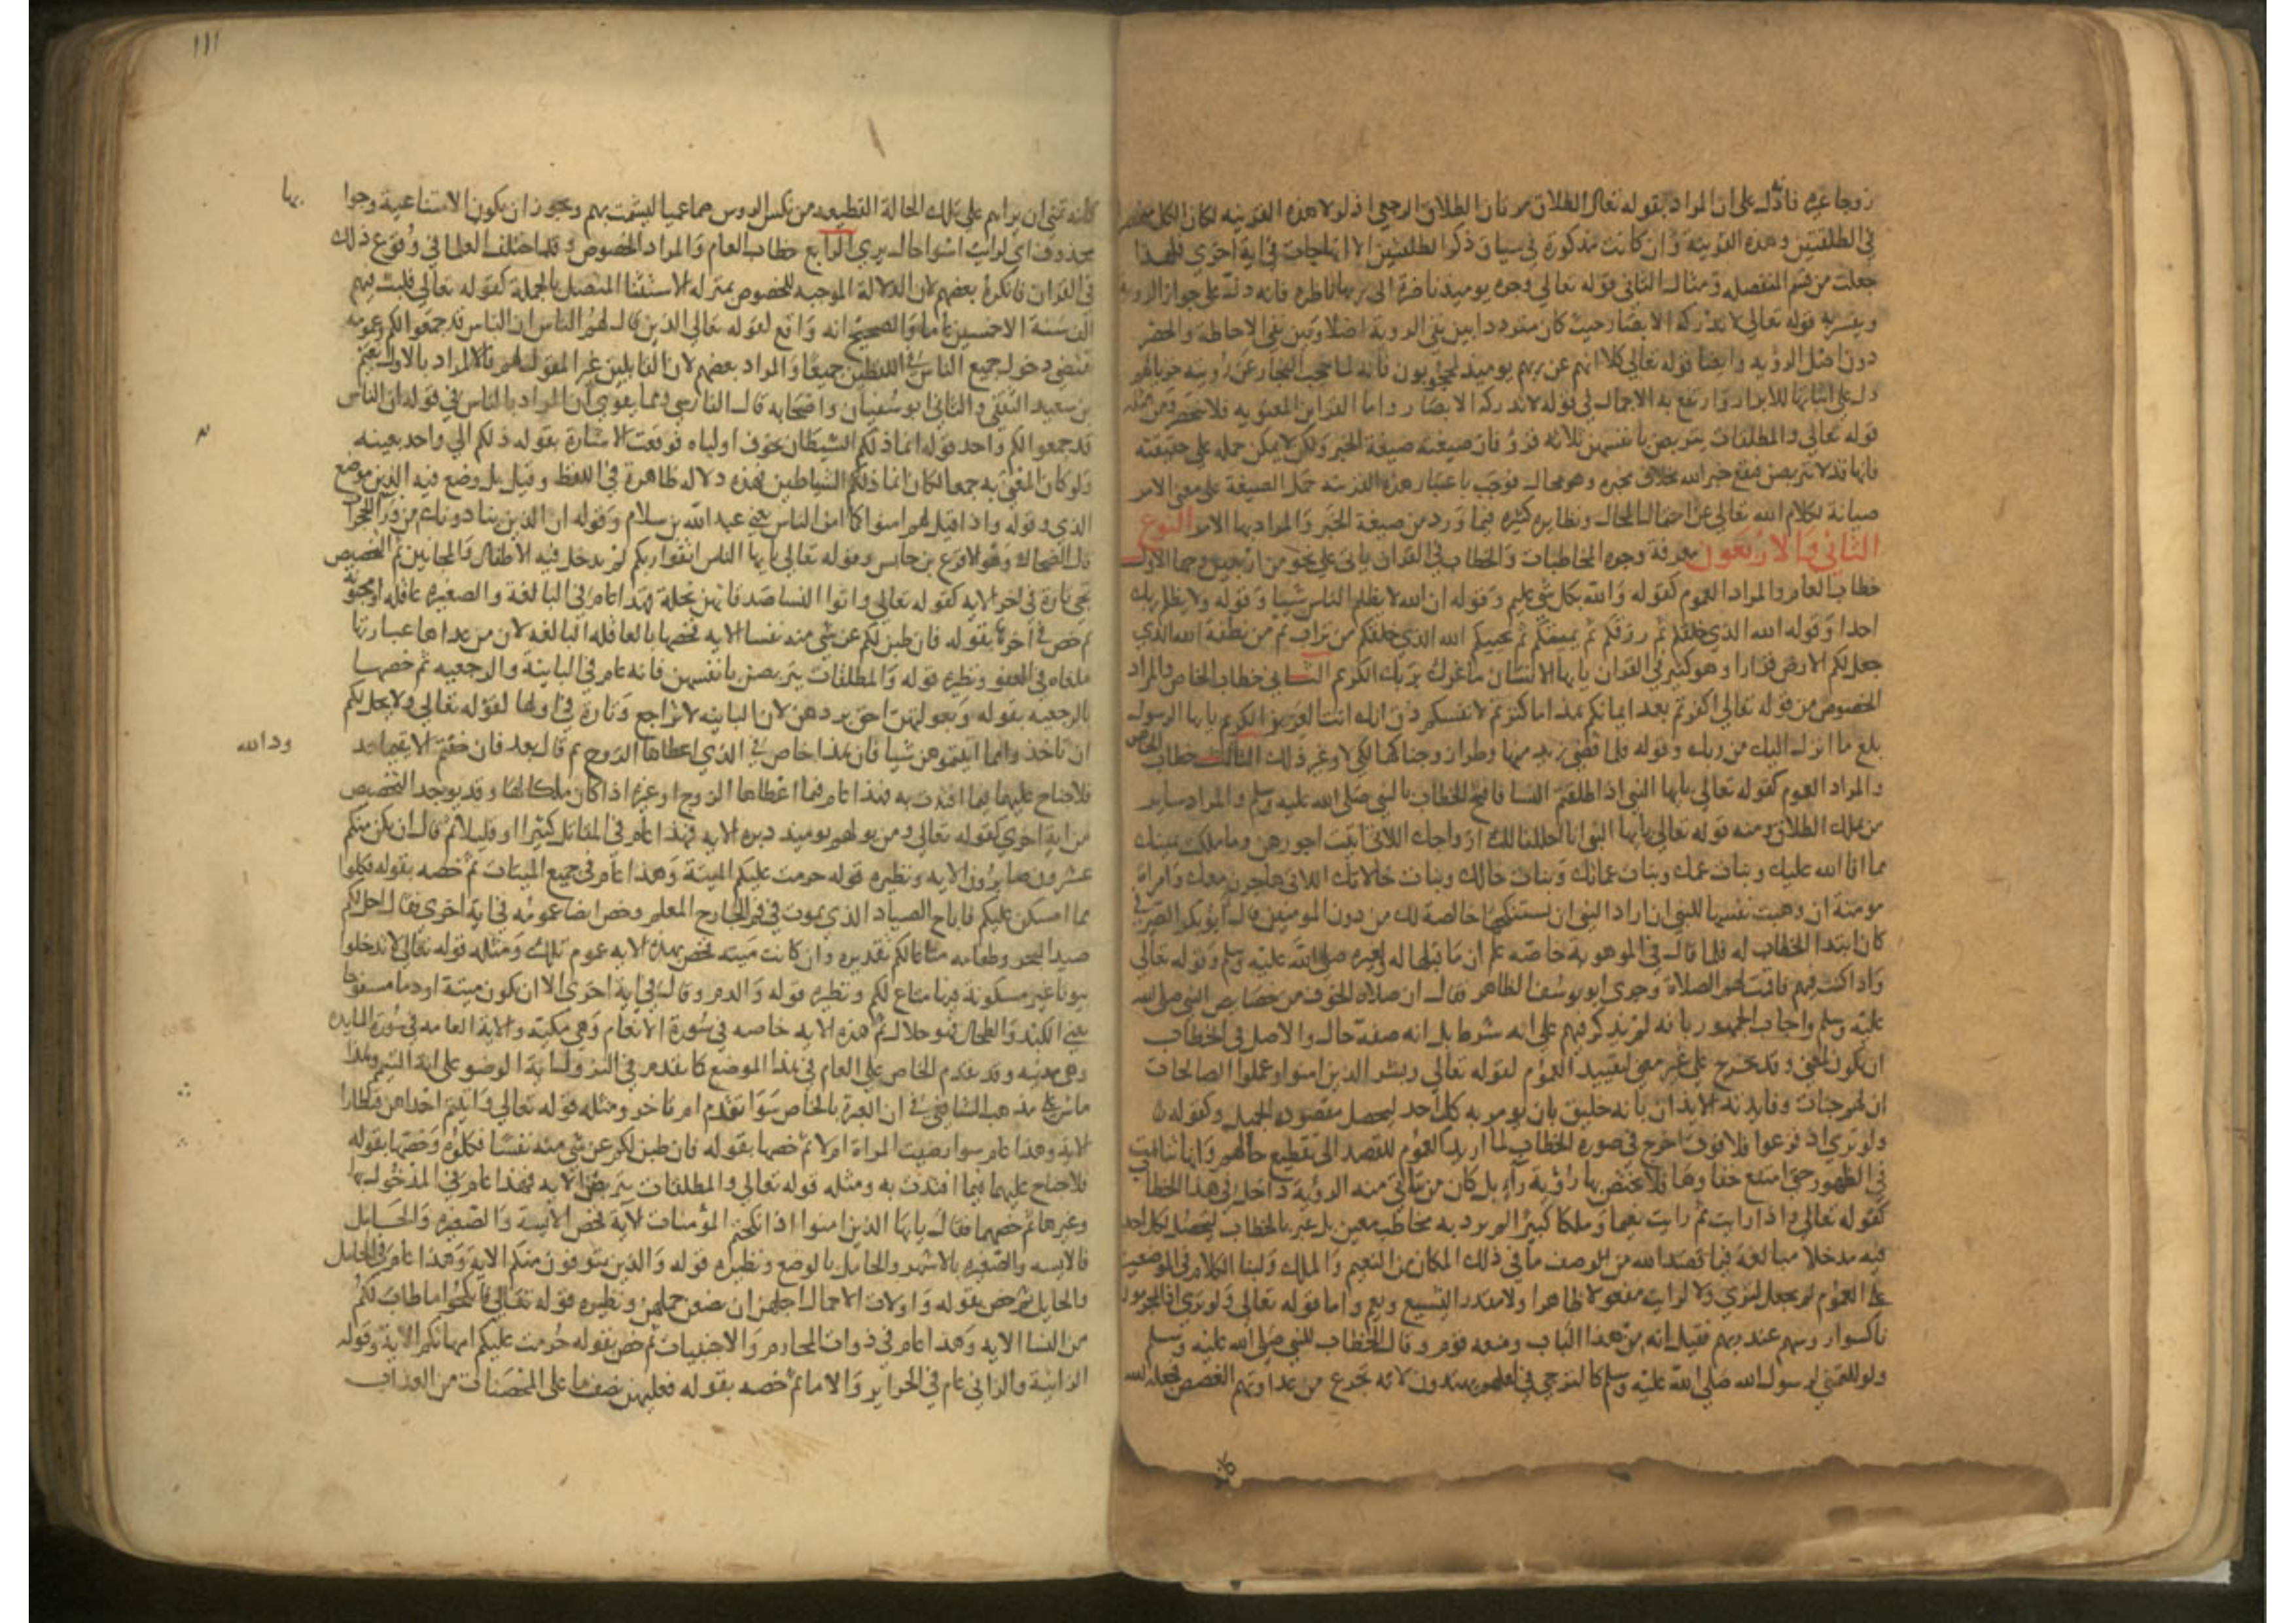 زوجا غيره فانه دل على ان المراد بقوله تعالى الطلاق مرتان الطلاق الرجعي اذ لولا هذه القرينه لكان الكل منحصرا
في الطلقتين وهذه القرينة وان كانت مذكورة في سياق ذكر الطلقتين الا انها جات في اية اخرى فلهذا
جعلت من قسم المنفصله ومثال الثاني قوله تعالى وجوه يوميذ ناضرة الى ربها ناظره فانه دل على جواز الروية
ويفسر به قوله تعالى لا تدركه الابصار حيث كان مترددا بين نفي الروية اصلا وبين نفي الاحاطة والحصر
دون اصل الرؤيه وايضا قوله تعالى كلا انهم عن ربهم يوميذ لمحجوبون فانه لما حجب الفجار عن رؤيته خزيا لهم
دل على اثباتها للابرار وارتفع به الاجمال في قوله لا تدركه الابصار واما القراين المعنويه فلا تنحصر ومن مثله
قوله تعالى والمطلقات يتربصن بانفسهن ثلاثة قرؤ فان صيغته صيغة الخبر ولكن لا يمكن حمله على حقيقته
فانها قد لا تتربصن فيقع خبر الله بخلاف مخبره وهو محال فوجب باعتبار هذه القرينة حمل الصيغة على معنى الامر
صيانة لكلام الله تعالى عن احتمال المحال ونظايره كثيره فيما ورد من صيغة الخبر والمراد بها الامر النوع
الثاني والاربعون معرفة وجوه المخاطبات والخطاب في القران ياتي على نحو من اربعين وجها الاول
خطاب العام والمراد العموم كقوله والله بكل شي عليم وقوله ان الله لا يظلم الناس شيئا وقوله ولا يظلم ربك
احدا وقوله الله الذي خلقكم ثم رزقكم ثم يميتكم ثم يحييكم الله الذي خلقكم من تراب ثم من نطفة الله الذي
جعل لكم الارض قرارا وهو كثير في القران يا يها الانسان ما غرك بربك الكريم الثاني خطاب الخاص والمراد
الخصوص من قوله تعالى اكفرتم بعد ايمانكم هذا ما كنزتم لانفسكم ذق انك انت العزيز الكريم يا يها الرسول
بلغ ما انزل اليك من ربك وقوله فلما قضى زيد منها وطرا زوجناكها لكي لا وغير ذلك الثالث خطاب الخاص
والمراد العموم كقوله تعالى يا يها النبي اذا طلقتم النسا فافتتح الخطاب بالنبي صلى الله عليه وسلم والمراد ساير
من يملك الطلاق ومنه قوله تعالى يا يها النبي انا احللنا لك ازواجك اللاتي اتيت اجورهن وما ملكت يمينك
مما افا الله عليك وبنات عمك وبنات عماتك وبنات خالك وبنات خالاتك اللاتي هاجرن معك وامراة
مومنة ان وهبت نفسها للنبي ان اراد النبي ان يستنكحها خالصة لك من دون المومنين قال ابو بكر الصيرفي
كان ابتدا الخطاب له فلما قال في الموهوبة خاصه علم ان ما قبلها له ولغيره صلى الله عليه وسلم وقوله تعالى
واذا كنت فيهم فاقمت لهم الصلاة وجرى ابو يوسف الظاهر فقال ان صلاة الخوف من خصايص النبي صلى الله
عليه وسلم واجاب الجمهور بانه لم يذكر فيهم على انه شرط بل انه صفة حال والاصل في الخطاب
ان يكون لمعين وقد يخرج على غير معين ليفيد العموم لقوله تعالى وبشر الذين امنوا وعملوا الصالحات
ان لهم جنات وفايدته الايذان بانه خليق بان يومر به كل احد ليحصل مقصوده الجميل وكقوله
ولو ترى اذ فزعوا فلا فوت اخرج في صورة الخطاب لما اريد العموم للقصد الى تقطيع حالهم وانها تناهت
في الظهور حتى امتنع خفاوها فلا تختص بها رؤية رآء بل كان من يتاتى منه الرؤية داخل في هذا الخطاب
كقوله تعالى واذا رايت ثم رايت نعيما وملكا كبيرا لم يرد به مخاطب معين بل عبر بالخطاب ليحصل لكل احد
فيه مدخلا مبالغة فيما قصد الله من وصف ما في ذلك المكان من النعيم والملك ولبنا الكلام في الموضعين
على العموم لم يجعل لترى ولا لرايت مفعولا ظاهرا ولا مقدرا ليشيع ويعم واما قوله تعالى ولو ترى اذ المجرمون
ناكسوا روسهم عند ربهم فقيل انه من هذا الباب ومنعه قوم وقال الخطاب للنبي صلى الله عليه وسلم
ولو للتمني لرسول الله صلى الله عليه وسلم كالترجي في لعلهم يهتدون لانه تجرع من عداوتهم الغصص فجعله الله
١١١
كانه تمنى ان يراهم على تلك الحالة الفظيعه من نكس الروس صما عميا ليشمت بهم ويجوز ان يكون لو الامتناعية وجوابها
محذوف اي لرايت اسوا حال يرى الرابع خطاب العام والمراد الخصوص وقد اختلف العلما في وقوع ذلك
في القران فانكره بعضهم لان الدلالة الموجبه للخصوص بمنزلة الاستثنا المتصل بالجملة كقوله تعالى فلبث فيهم
الف سنة الا خمسين عاما والصحيح انه واقع لقوله تعالى الذين قال لهم الناس ان الناس قد جمعوا لكم وعمومه
يقتضي دخول جميع الناس في اللفظين جميعا والمراد بعضهم لان القايلين غير المقول لهم فالمراد بالاول نعيم
بن سعيد الثقفي والثاني ابو سفيان واصحابه قال الفارسي ومما يقوي ان المراد بالناس في قوله ان الناس
قد جمعوا لكم واحد قوله انما ذلكم الشيطان يخوف اولياه فوقعت الاشارة بقوله ذلكم الى واحد بعينه
ولو كان المعني به جمعا لكان انما ذلكم الشياطين فهذه دلالة ظاهرة في اللفظ وقيل بل وضع فيه الذين موضع
الذي وقوله واذا قيل لهم امنوا كما امن الناس يعني عبد الله بن سلام وقوله ان الذين ينادونك من ورا الحجرات
قال الضحاك وهو الاقرع بن حابس وقوله تعالى يا يها الناس اتقوا ربكم لم يدخل فيه الاطفال والمجانين ثم التخصيص
يجي تارة في اخر الاية كقوله تعالى واتوا النسا صدقاتهن نحلة فهذا عام في البالغة والصغيرة عاقله او مجنونة
ثم خص في اخرها بقوله فان طبن لكم عن شي منه نفسا الاية فخصها بالعاقلة البالغه لان من عداها عبارتها
ملغاه في العفو ونظيره قوله والمطلقات يتربصن بانفسهن فانه عام في الباينة والرجعيه ثم خصها
بالرجعيه بقوله وبعولتهن احق بردهن لان الباينه لا تراجع وتارة في اولها لقوله تعالى ولا يحل لكم
ان تاخذوا مما اتيتموهن شيا فان هذا خاص في الذي اعطاها الزوج ثم قال بعد فان خفتم الا يقيما حدود الله
فلا جناح عليهما فيما افتدت به فهذا عام فيما اعطاها الزوج او غيره اذا كان ملكا لها وقد يوجد التخصيص
من اية اخرى كقوله تعالى ومن يولهم يوميذ دبره الاية فهذا عام في المقاتل كثيرا او قليلا ثم قال ان يكن منكم
عشرون صابرون الاية ونظيره قوله حرمت عليكم الميتة وهذا عام في جميع الميتات ثم خصه بقوله فكلوا
مما امسكن عليكم فاباح الصياد الذي يموت في فم الجارح المعلم وخص ايضا عمومه في اية اخرى فقال احل لكم
صيد البحر وطعامه متاعا لكم تقديره وان كانت ميتة فخص بهذه الاية عموم تلك ومثله قوله تعالى لا تدخلوا
بيوتا غير مسكونة فيها متاع لكم ونظيره قوله والدم وقال في اية اخرى الا ان يكون ميتة او دما مسفوحا
يعني الكبد والطحال فهو حلال ثم هذه الاية خاصه في سورة الانعام وهي مكية والاية العامه في سورة المايده
وهي مدنية وقد تقدم الخاص على العام في هذا الموضع كما تقدم في النزول اية الوضو على اية التيمم وهذا
ماش على مذهب الشافعي في ان العبرة بالخاص سوا تقدم ام تاخر ومثله قوله تعالى واتيتم احداهن قنطارا
الاية وهذا عام سوا رضيت المراة ام لا ثم خصها بقوله فان طبن لكم عن شي منه نفسا فكلوه وخصها بقوله
فلا جناح عليهما فيما افتدت به ومثله قوله تعالى والمطلقات يتربصن الاية فهذا عام في المدخول بها
وغيرها ثم خصهما فقال يا يها الذين امنوا اذا نكحتم المؤمنات الاية فخص الايسة والصغيرة والحامل
فالايسه والصغيره بالاشهر والحامل بالوضع ونظيره قوله والذين يتوفون منكم الاية وهذا عام في الحامل
والحايل ثم خص بقوله واولات الاحمال اجلهن ان يضعن حملهن ونظيره قوله تعالى فانكحوا ما طاب لكم
من النسا الاية وهذا عام في ذوات المحارم والاجنبيات ثم خص بقوله حرمت عليكم امهاتكم الاية وقوله
الزانية والزاني عام في الحراير والاماء ثم خصه بقوله فعليهن نصف ما على المحصنات من العذاب